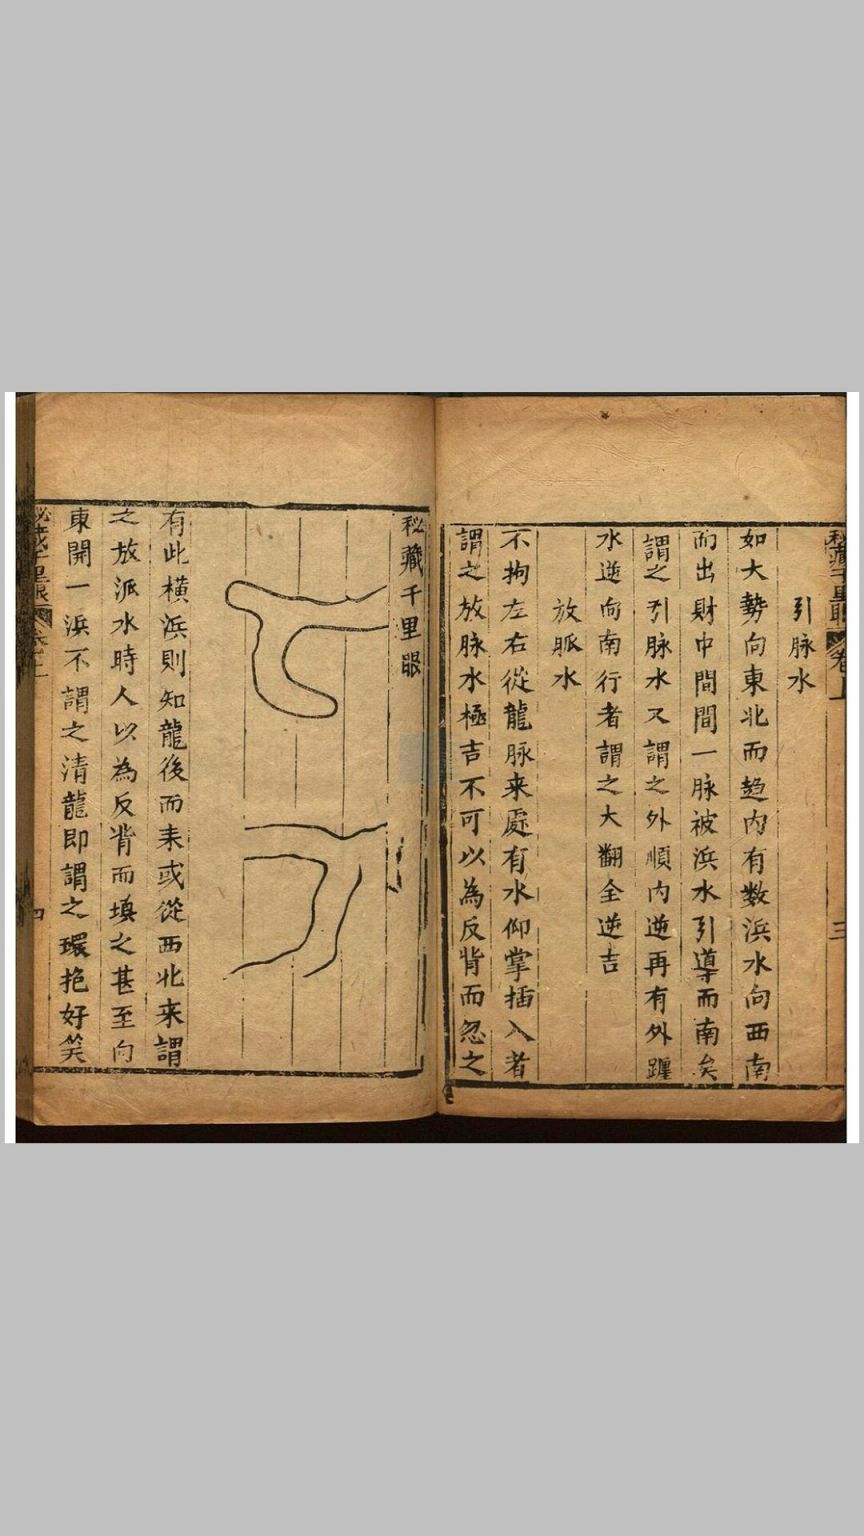 秘藏千里眼
卷上
三
引脉水
如大勢向東北而趋内有数浜水向西南
而出財中間間一脉被浜水引導而南矣
謂之引脉水又謂之外順内逆再有外躔
水逆向南行者謂之大翻全逆吉
放脈水
不拘左右從龍脉来處有水仰掌插入者
謂之放脉水極吉不可以為反背而忽之
秘藏千里眼
有此橫浜則知龍後而来或從西北来謂
之放派水時人以為反背而填之甚至向
東開一浜不謂之清龍即謂之環抱好笑
秘藏千里眼
卷上
四